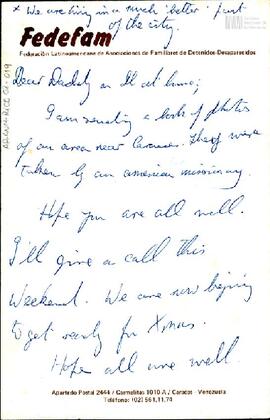 * We are living in a much 'better' part
of the city.
Fedefam
Federación Latinoamericana de Asociaciones de Familiares de Detenidos-Desaparecidos
Dear Daddy an all at home;
I am sending a book of photos
of an area near Caracas. They were
taken by an american missionary.
Hope you are all well.
I'll give a call this
Weekend. We are now begining
to get ready for Xmas.
Hope all are well.
Apartado Postal 2444 / Carmelitas 1010-A / Caracas - Venezuela
Teléfono: (02) 561.11.74